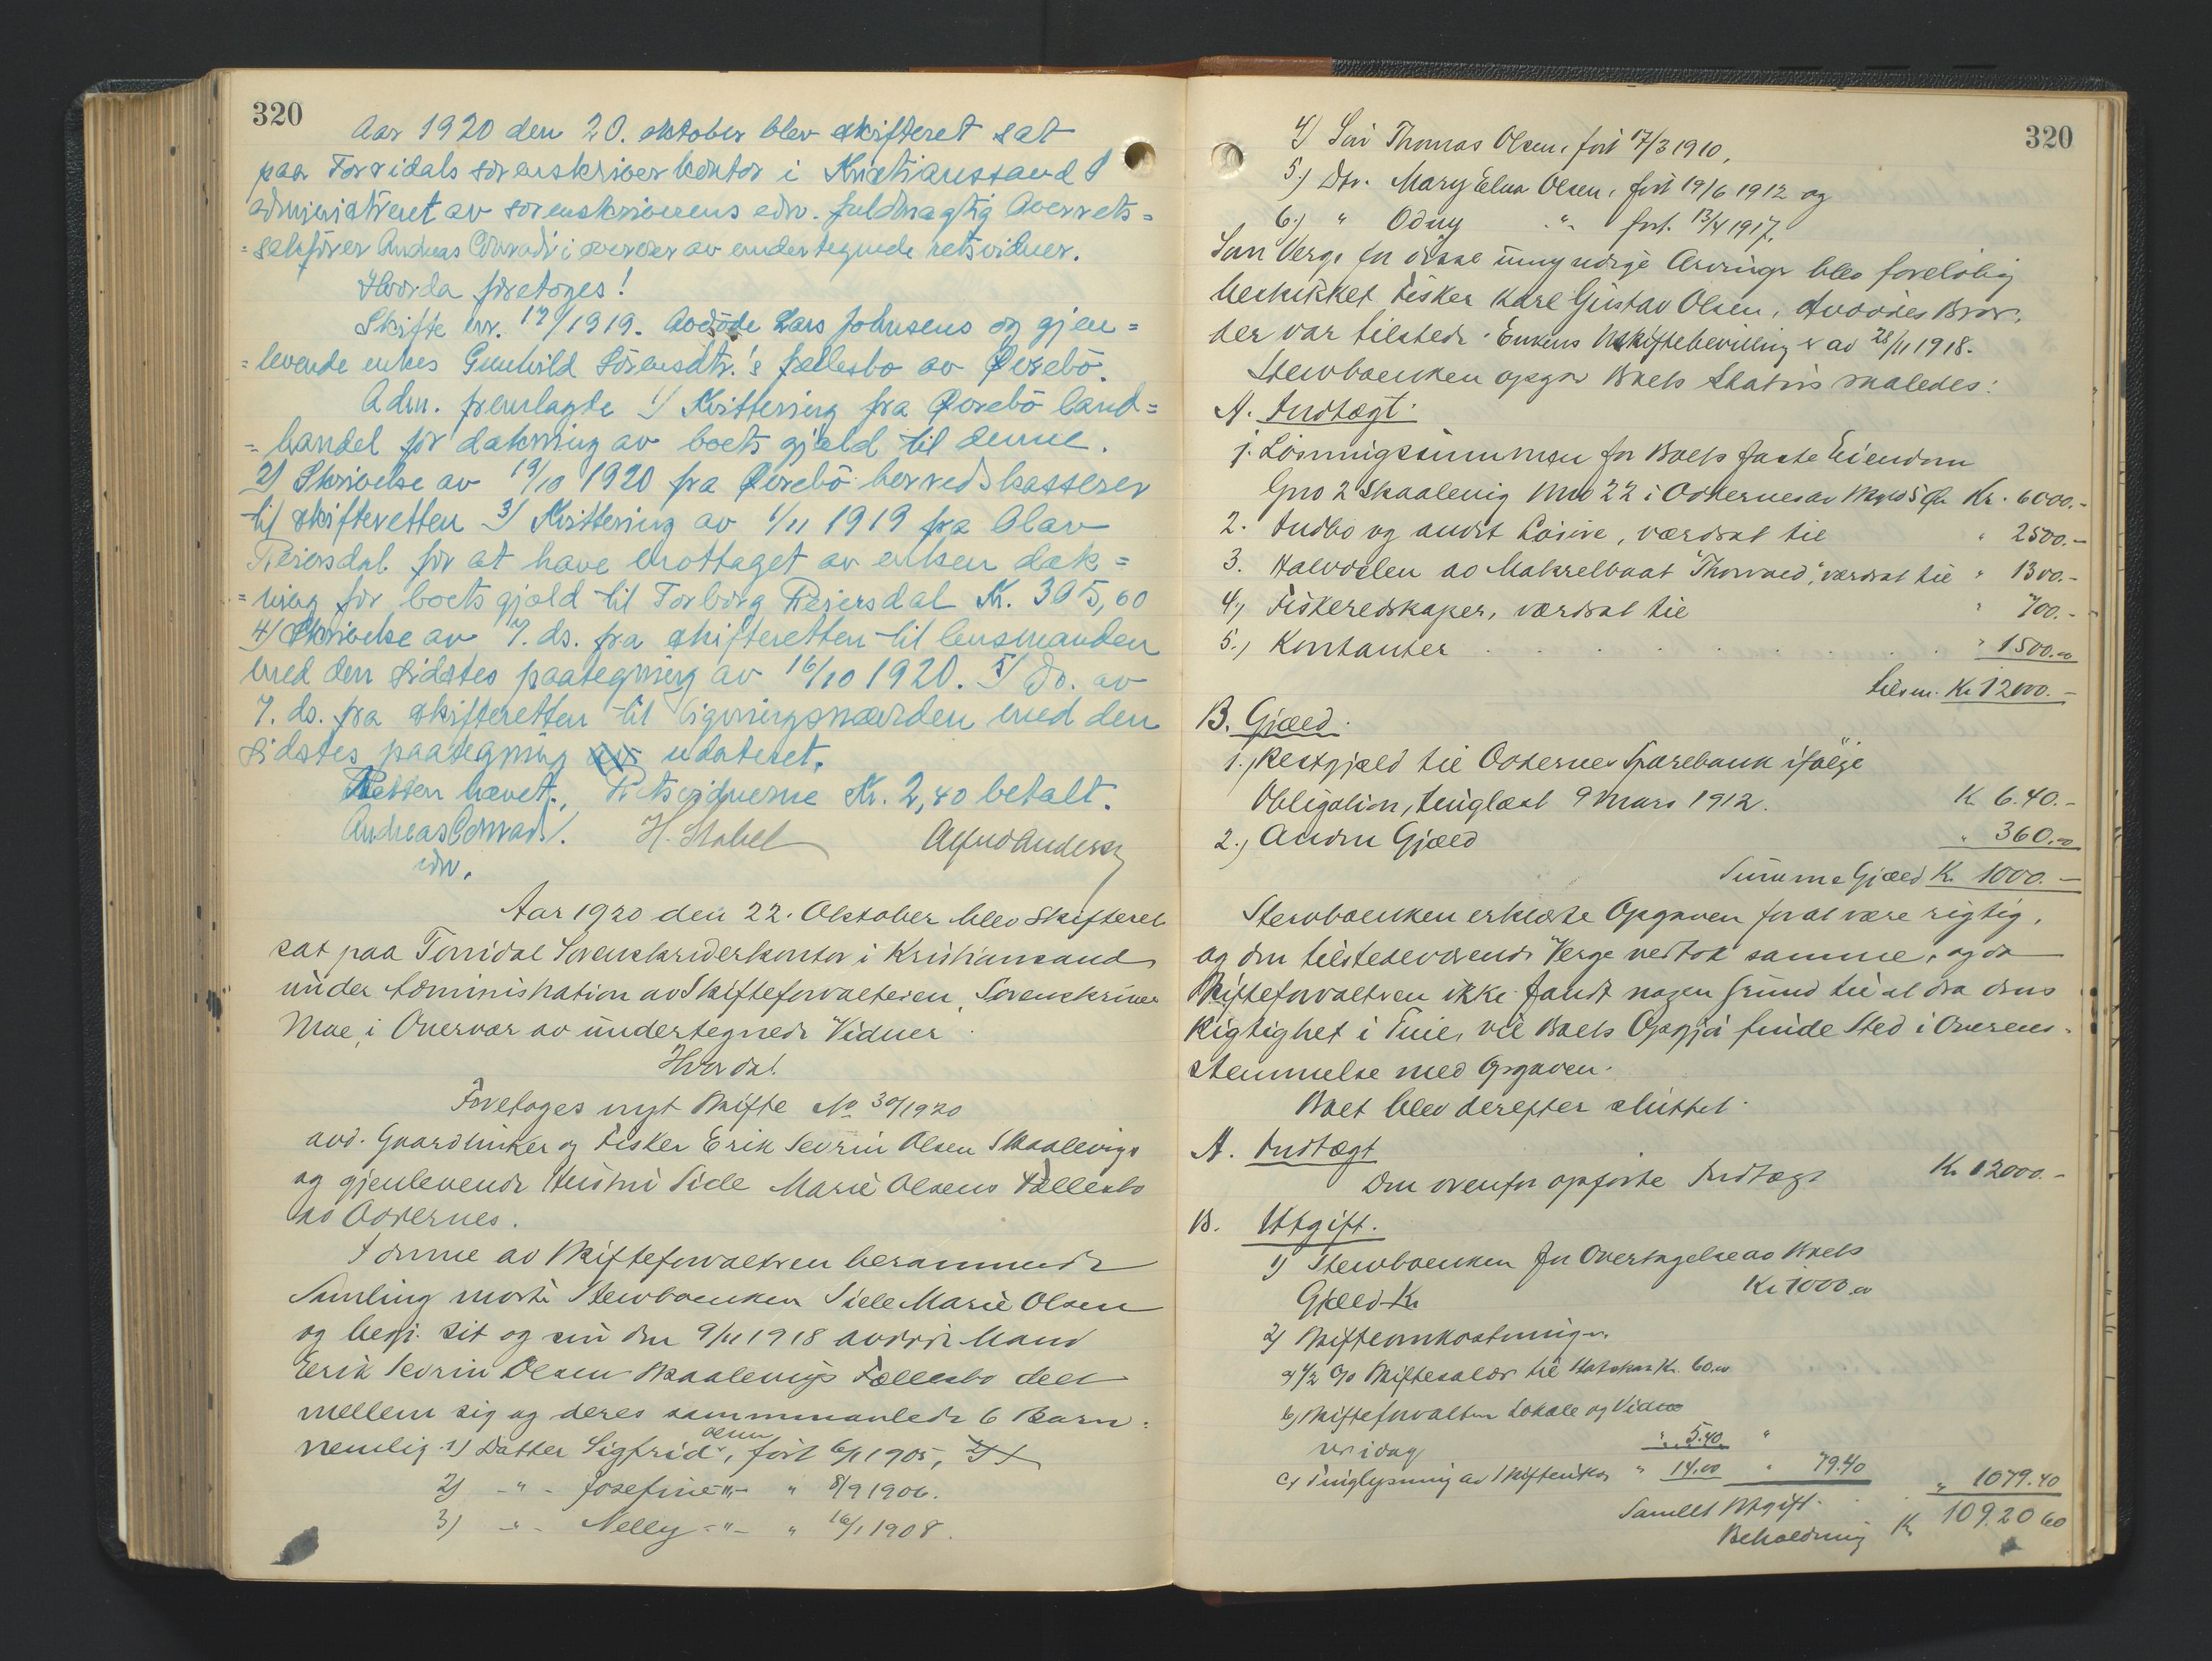 320
Aar 1920 den 20. oktober blev skifteret sat
paa Torridals sorenskriverkontor i Kristianssand S
administreret av sorenskriverens edsv. fuldmægtig Overrets=
=sakfører Andreas Conradi i overvær av undertegnede retsvidner.
Hvorda foretoges!
Skifte nr. 17/1919. Avdøde Lars Johnsens og gjen=
=levende enkes Gunhild Sørensdtr.'s fællesbo av Øvrebø.
Adm. fremlagte 1/ Kvittering fra Øvrebø land=
=handel for dækning av boets gjæld til denne.
2/ Skrivelse av 19/10 1920 fra Øvrebø herredskasserer
til skifteretten 3/ Kvittering av 1/11 1919 fra Olav
Reiersdal for at have mottaget av enken dæk=
=ning for boets gjæld til Torborg Reiersdal Kr. 305,60
4/ Skrivelse av 7. ds. fra skifteretten til lensmanden
med den sidstes paategning av 16/10 1920. 5/ Do. av
7. ds. fra skifteretten til ligningsnævnden med den
sidstes paategning udateret.
Retten hævet. Retsvidnerne Kr. 2,40 betalt.
Andreas Conradi. H. Stabel Alfred Andersen
edsv.
Aar 1920 den 22. Oktober blev Skifteret
sat paa Torridal Sorenskriverkontor i Kristianssand
under Administration av Skifteforvalteren, Sorenskriver
Moe, i Overvær av undertegnede Vidner
Hvorda!
Foretoges nyt Skifte No 30/1920
avd. Gaardbruker og Fisker Erik Sevrin Olsen Skaalevigs
og gjenlevende Hustru Sille Marie Olsens Fællesbo
av Oddernes.
I denne av Skifteforvalteren berammede
Samling møtte Stervboenken Sille Marie Olsen
og begj. sit og sin den 9/11 1918 avdøde Mand
Erik Sevrin Olsen Skaalevigs Fællesbo delt
mellem sig og deres sammenavlede 6 Barn:
nemlig 1) Datter Sigfrid Olsen, født 6/1 1905,
2) -"- Josefine -"- " 8/9 1906.
3) -"- Nelly -"- " 16/1 1908.
320
4) Søn Thomas Olsen, født 17/3 1910,
5.) Dtr. Mary Elna Olsen, født 19/6 1912 og
6.) " Odny " født 13/4 1917.
Som Verge for disse umyndige Arvinger blev foreløbig
beskikket Fisker Karl Gustav Olsen, Avdødes Bror,
der var tilstede. Enkens Uskiftebevilling er av 28/11 1918.
Stervboenken opgav Boets Status saaledes:
A. Indtægt.
1. Løsningssummen for Boets faste Eiendom
Gno 2 Skaalevig Bno 22 i Oddernes av Skyld 5 Øre Kr. 6000.-
2. Indbo og andet Løsøre, værdsat til " 2500.-
3. Halvdelen av Makrelbaat "Thorvald", værdsat til " 1300.-
4, Fiskeredskaper, værdsat til " 700.-
5., Kontanter . . . . . . " 1500.00
tilsm. Kr 12000.-
B. Gjæld.
1., Restgjæld til Oddernes Sparebank ifølge
Obligation, tinglæst 9 Mars 1912. Kr 640.-
2., Anden Gjæld " 360.00
Summa Gjæld Kr. 1000.-
Stervboenken erklærte Opgaven for at være rigtig,
og den tilstedeværende Verge vedtok samme, og da
Skifteforvalteren ikke fandt nogen Grund til at dra dens
Rigtighet i Tvil, vil Boets Opgjør finde Sted i Overens-
stemmelse med Opgaven.
Boet blev derefter sluttet.
A. Indtægt
Den ovenfor opførte Indtægt Kr 12000.-
B. Utgift.
1) Stervboenken for Overtagelse av Boets
Gjæld Kr Kr 1000.00
2) Skifteomkostninger.
a) 1/2 % Skiftesalær til Statskas Kr. 60.00
b) Skifteforvalteren Lokale og Vidne
ne idag " 5.40 "
c) Tinglysning av Skifteutlæg " 14.00 " 79.40 " 1079.40
Samlet Utgift.
Beholdning Kr 10920 60